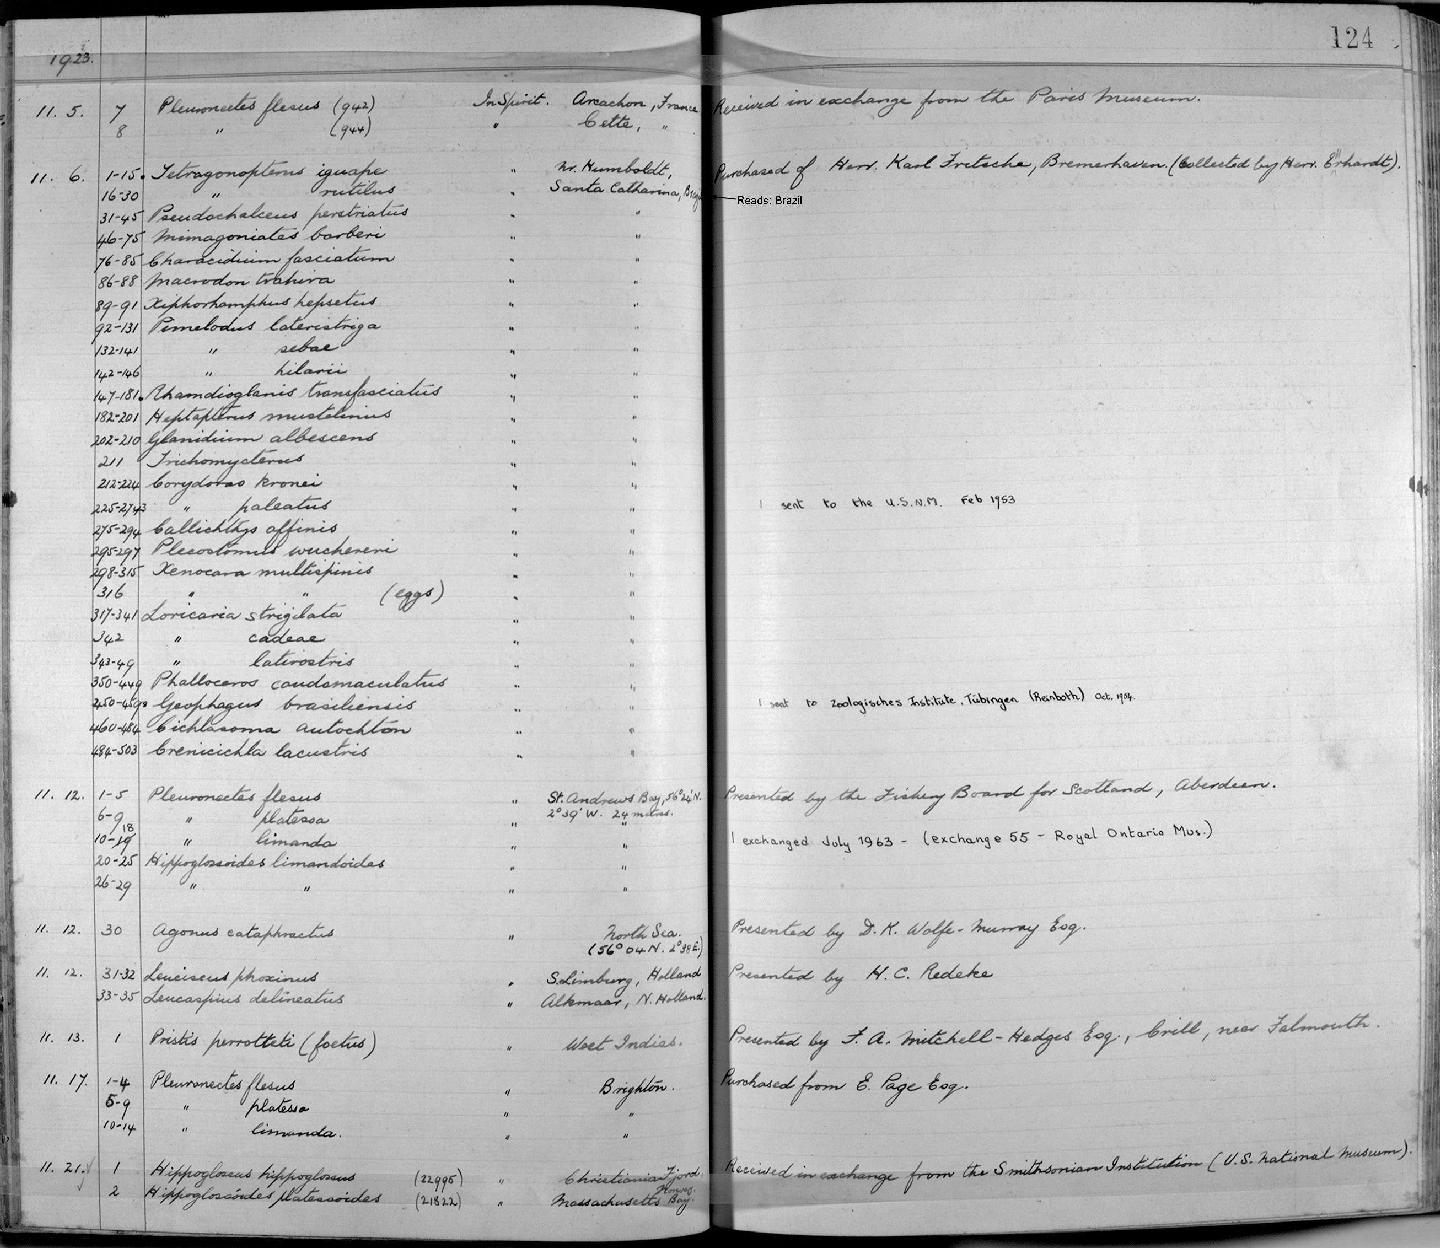 124
1923.
11. 5. 7 Pleuronectes flesus (942) In Spirit. Arcachon, France Received in exchange from the Paris Museum.
8 " (944) " Cette, "
11. 6. 1-15 Tetragonopterus iguape " Nr. Humboldt, Purchased of Herr. Karl Fritsche, Bremerhaven. (Collected by Herr. Ehrhardt).
16-30 " rutilus " Santa Catharina, Brazil Reads: Brazil
31-45 Pseudochalceus perstriatus " "
46-75 Mimagoniates barberi " "
76-85 Characidium fasciatum " "
86-88 Macrodon trahira " "
89-91 Xiphorhamphus hepsetus " "
92-131 Pimelodus lateristriga " "
132-141 " sebae " "
142-146 " hilarii " "
147-181 Rhamdioglanis transfasciatus " "
182-201 Heptapterus mustelinus " "
202-210 Glanidium albescens " "
211 Trichomycterus " "
212-224 Corydoras kronei " "
225-274 " paleatus " " 1 sent to the U.S.N.M. Feb 1953
275-294 Callichthys affinis " "
295-297 Plecostomus wuchereri " "
298-315 Xenocara multispinis " "
316 " " (eggs) " "
317-341 Loricaria strigilata " "
342 " cadeae " "
343-49 " latirostris " "
350-449 Phalloceros caudomaculatus " "
450-459 Geophagus brasiliensis " " 1 sent to Zoologisches Institute, Tübingen (Reinboth) Oct. 1954.
460-484 Cichlasoma autochton " "
484-503 Crenicichla lacustris " "
11. 12. 1-5 Pleuronectes flesus " St. Andrews Bay, 56°24'N. Presented by the Fishery Board for Scotland, Aberdeen.
6-9 " platessa " 2°39'W. 24 metres.
10-19 18 " limanda " " 1 exchanged July 1963 - (exchange 55 - Royal Ontario Mus.)
20-25 Hippoglossoides limandoides " "
26-29 " " " "
11. 12. 30 Agonus cataphractus " North Sea. Presented by D. K. Wolfe-Murray Esq.
(56°04N. 2°38E.)
11. 12. 31-32 Leuciscus phoxinus " S. Limburg, Holland Presented by H. C. Redeke
33-35 Leucaspius delineatus " Alkmaar, N. Holland.
11. 13. 1 Pristis perrotteti (foetus) " West Indies. Presented by F. A. Mitchell-Hedges Esq., Crill, near Falmouth.
11. 17. 1-4 Pleuronectes flesus " Brighton. Purchased from E. Page Esq.
5-9 " platessa " "
10-14 " limanda. " "
11. 21. 1 Hippoglossus hippoglossus (22995) " Christiania Fjord Received in exchange from the Smithsonian Institution (U.S. National Museum).
2 Hippoglossoides platessoides (21822) " Massachusetts Bay.